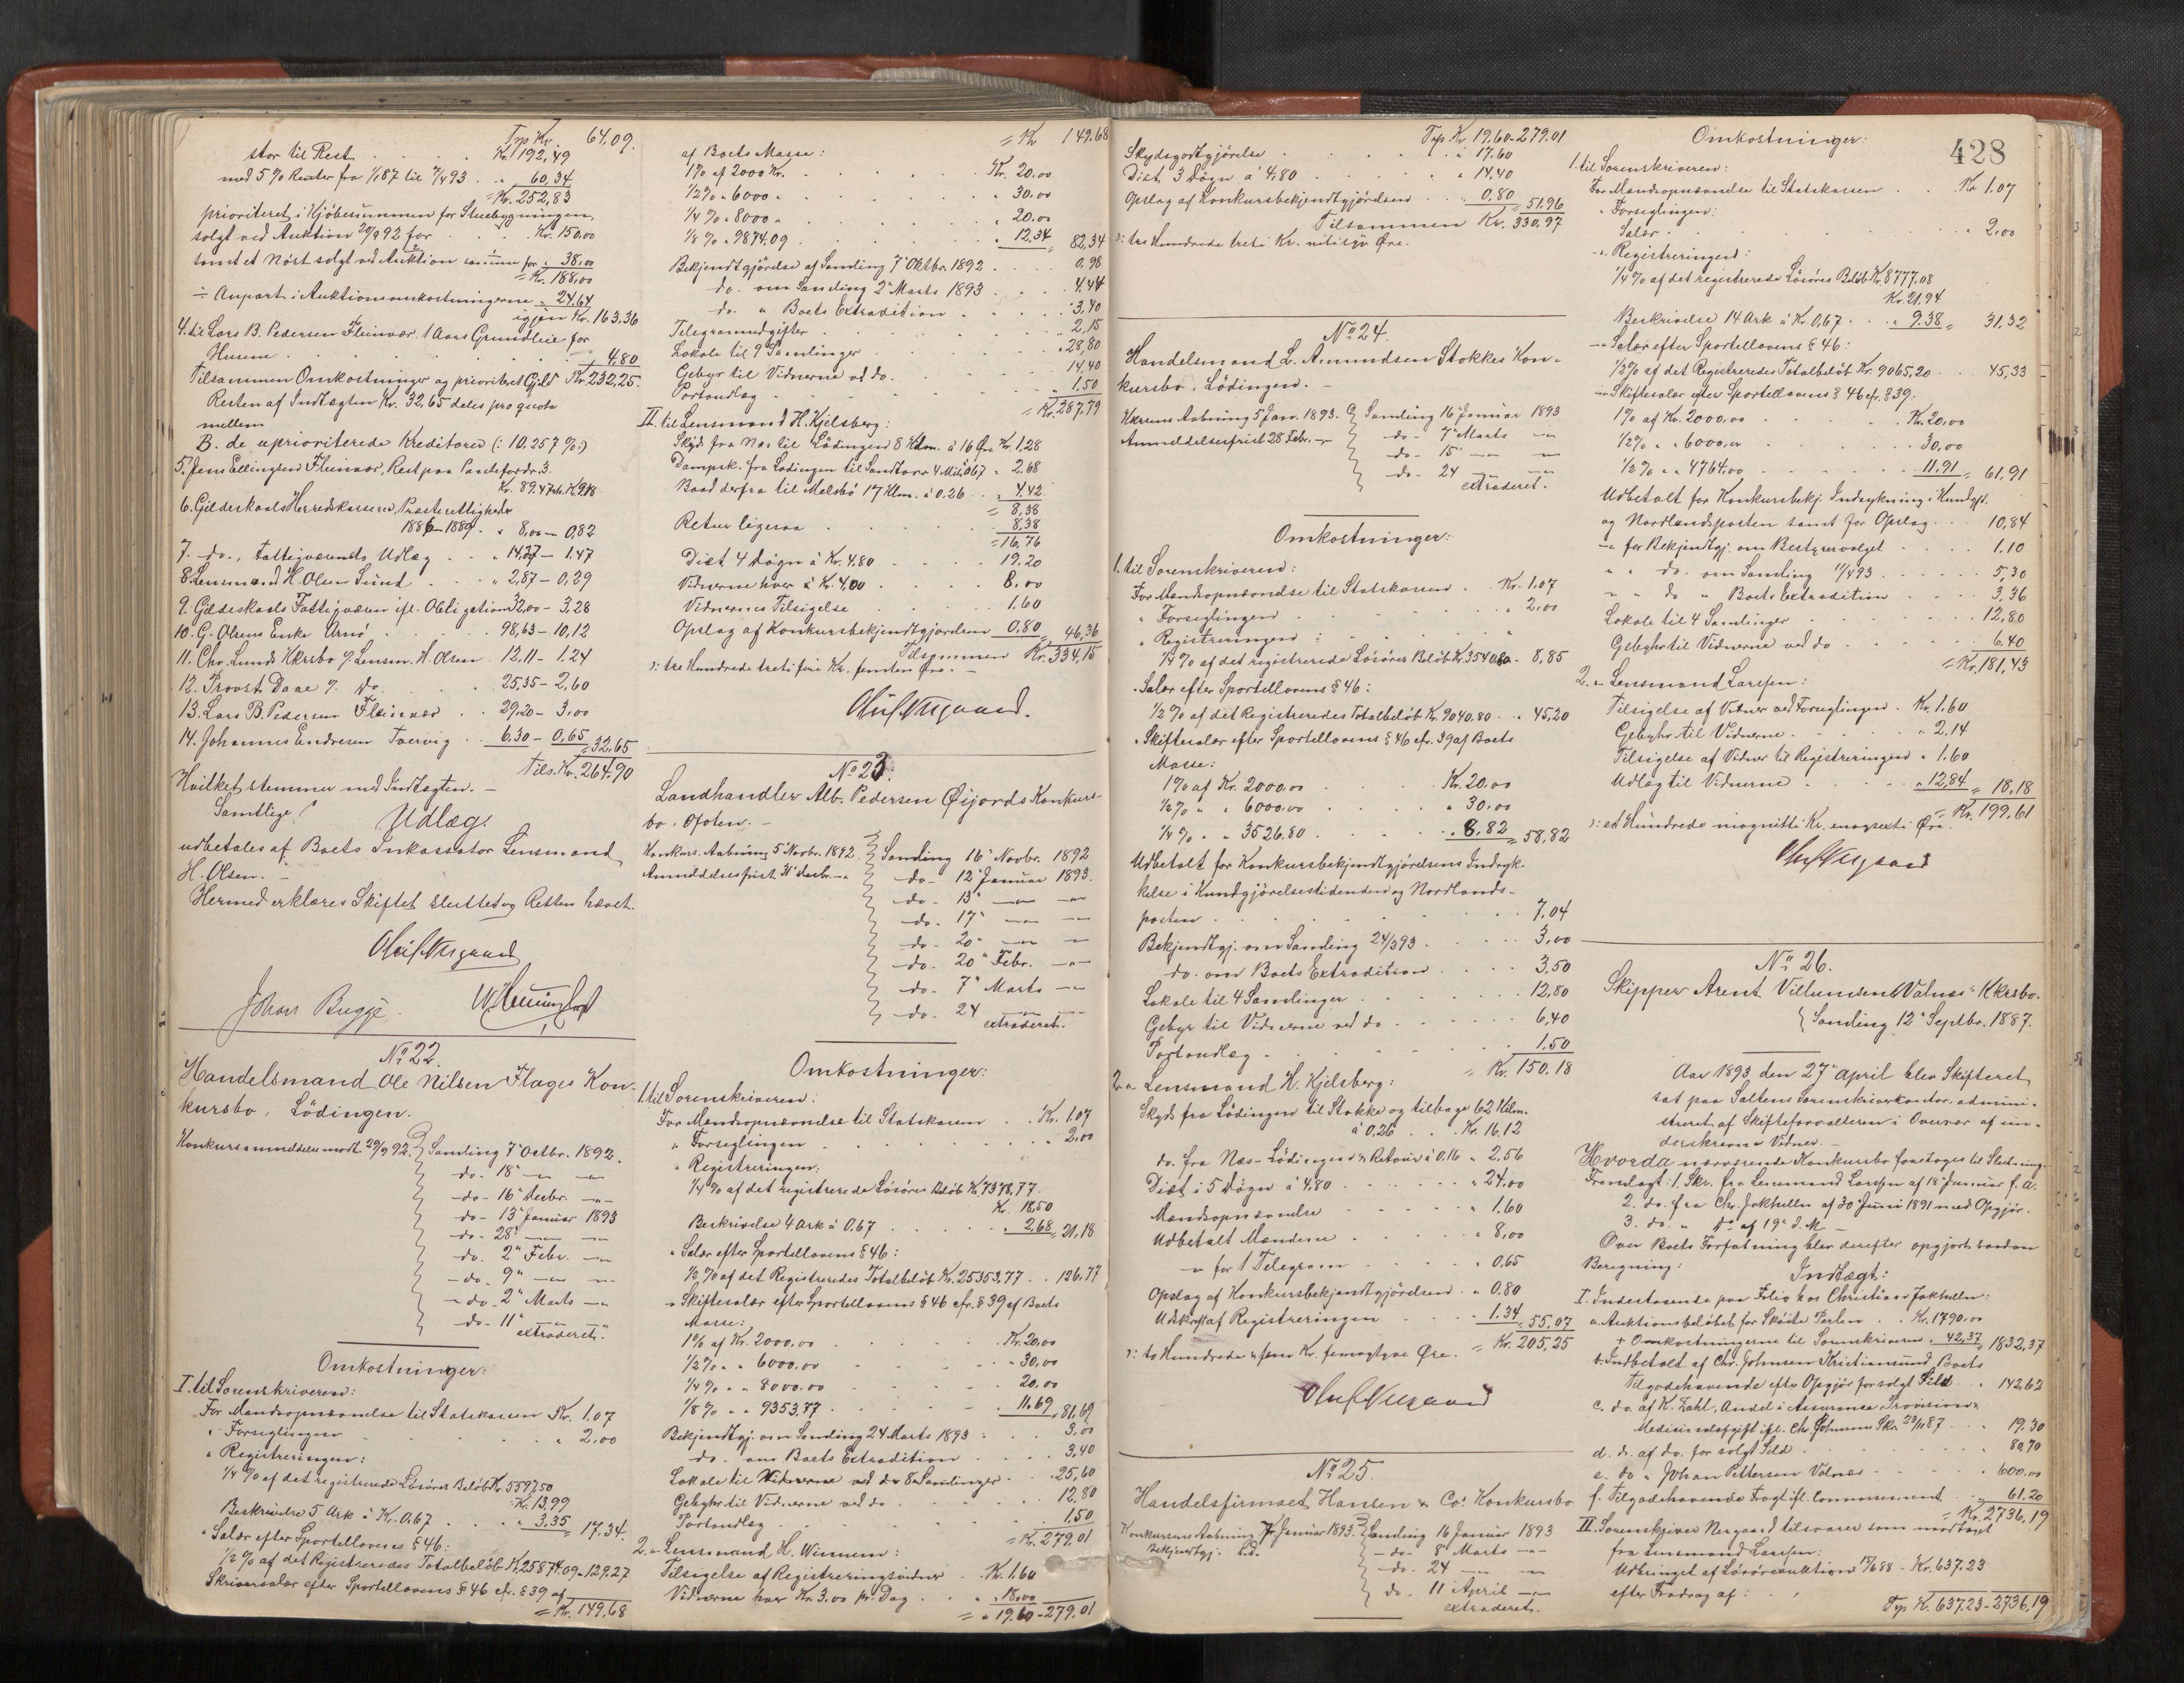 Trp. Kr. 64,09.
stor til Rest . . . Kr. 192,49
med 5 % Renter fra 1/1 87 til 7/4 93 . . „ 60,34
= Kr. 252,83
prioriteret i Kjøbesummen for Stuebygningen,
solgt ved Auktion 20/9 92 for . . Kr. 150,00
samt et Nøst solgt ved Auktion samme for „ 38,00
= Kr. 188,00
÷ Anpart i Auktionsomkostningerne „ 24,64
igjen Kr. 163,36
4. til Lars B. Pedersen Fleinvær 1 Aars Grundleie for
Husene . . . 4,80
Tilsammen Omkostninger og prioritert Gjeld Kr. 232,25.
Resten af Indtægten Kr. 32,65 deles pro quota
mellem
B. de uprioriterede Kreditorer (: 10.257 % :)
5. Jens Ellingsen Fleinvær, Rest paa Pantefordr. 3.
Kr. 89.47 Kr. 9,18
6. Gildeskaals Herredskasserer, Præsterettigheder
1886-1889 . „ 8,00 – 0,82
7. do., Fattigvæsenets Udlæg . . „ 14,37 – 1.47
8. Lensmand H. Olsen Sund . . „ 2,87 – 0,29
9. Gildeskaals Fattigvæsen ifl. Obligation 32,00 – 3.28
10. G. Olsens Enke Arnø . . 98,63 – 10,12
11. Chr. Lunds Kkrsbo v. Lensm. H. Olsen . 12.11 – 1.24
12. Provst Daae v. do. . . 25,35 – 2,60
13. Lars B. Pedersen Fleinvær . . 29,20 – 3,00
14. Johannes Endresen Tvervig . . 6.30 – 0,65 = 32,65
Tils. Kr. 264.90
Hvilket stemmer med Indtægten. –
Samtlige
Udlæg
udbetales af Boets Inkassator Lensmand
H. Olsen. –
Hermed erklæres Skiftet sluttet og Retten hævet.
Johan Bugge.
No 22.
Handelsmand Ole Nilsen Flages Kon-
kursbo, Lödingen.
Konkursanmeldelse modt. 29/9 92. Samling 7de Octbr. 1892.
do. 18 – „ – „
– do – 16 Decbr. – „ –
do – 13 Januar 1893
do – 28 – „ – „
do. 2 Febr. – „
– do. 9 – „ – „
– do. 2 Marts – „
do – 11 – „ – „
extraderet.
Omkostninger:
I. til Sorenskriveren:
For Mandsopnævnelse til Statskassen Kr. 1.07
„ Forseglingen . . . „ 2.00
„ Registreringen:
1/4 % af det registrerede Løsøres Beløb Kr. 5597,50
Kr. 13,99
Beskrivelse 5 Ark à Kr. 0,67 . . „ 3,35 = 17.34.
„ Salær efter Sportellovens § 46:
1/2 % af det Registreredes Totalbeløb Kr. 25874.09 „ 129.27
Skriversalær efter Sportellovens § 46 cfr. § 39 af
= Kr. 149,68
= Kr 149.68
af Boets Masse:
1 % af 2000 Kr. . . . Kr. 20,00
1/2 % „ 6000 „ . . . „ 30,00
1/4 % „ 8000 „ . . . „ 20,00
1/8 % „ 9874,09 . . . „ 12,34 = 82,34
Bekjendtgjörelse af Samling 7 Oktbr. 1892 . . 0,98
do. om Samling 2 Marts 1893 . . 4.44
do. „ Boets Extradition . . 3,40
Telegramudgifter . . . 2,15
Lokale til 9 Samlinger . . „ 28,80
Gebyr til Vidnerne ved do. . . 14,40
Portoudlæg . . . „ 1.50
= Kr. 287,79
II. til Lensmand H. Kjelsberg:
Skyds fra Næs til Lödingen 8 Klm. à 16 Øre Kr. 1,28
Dampsk. fra Lødingen til Sandtorv 4 Mil à 0,67 „ 2.68
Baad derfra til Melsbö 17 Klm. à 0.26 . . „ 4.42
= 8,38
Retur ligesaa . . . 8.38
= 16,76
Diæt 4 Døgn à Kr. 4.80 . . 19.20
Vidnerne hver à Kr. 4,00 . . 8,00
Vidnernes Tilsigelse . . 1.60
Opslag af Konkursbekjendtgjørelsen 0,80 = 46,36
Tilsammen Kr. 334,15
ɔ: tre Hundrede treti fire Kr. femten Øre. –
No 23.
Landhandler Alb. Pedersen Øijords Konkurs-
bo. Ofoten. –
Konkurs. Aabning 5 Novbr. 1892. Samling 16 Novbr. 1892
Anmeldelsesfrist 31 Decbr. – „ do – 12 Januar 1893.
do – 13 – „ – „
do. 17 – „ – „
do – 20 – „ – „
– do. 20 Febr. – „ –
– do. 7 Marts – „
do. 24 – „ –
extraderet.
Omkostninger:
1. til Sorenskriveren:
For Mandsopnævnelse til Statskassen . . Kr. 1.07
„ Forseglingen . . . „ 2.00
„ Registreringen:
1/4 % af det registrerede Løsøres Beløb Kr. 7378,77.
Kr. 18,50
Beskrivelse 4 Ark à 0.67 . . . „ 2,68 = 21,18
„ Salær efter Sportellovens § 46:
1/2 % af det Registreredes Totalbeløb Kr. 25353,77 . . 126.77
„ Skiftesalær efter Sportellovens § 46 cfr. § 39 af Boets
Masse:
1 % af Kr. 2000.00 . . Kr. 20,00
1/2 % „ „ 6000.00 . . „ 30,00
1/4 % „ „ 8000.00 . . 20,00
1/8 % „ „ 9353,77 . . . 11.69 „ 81,69
Bekjendtgj. om Samling 24 Marts 1893 . . 3,00
do. om Boets Extradition . . 3,40
Lokale til Vidnerne ved do 8 Samlinger . . 25,60
Gebyhr til Vidnerne ved do . . 12.80
Portoudlæg . . . 1.50
= Kr. 279.01
2. „ Lensmand H. Winnem:
Tilsigelse af Registreringsvidner . Kr. 1.60
Vidnerne hver Kr. 3,00 pr. Dag . . „ 18,00
= „ 19.60 – 279.01
428
Trp. Kr. 19,60 – 279.01
Skydsgodtgjørelse . . . „ 17,60
Diæt 3 Døgn à 4,80 . . „ 14.40
Opslag af Konkursbekjendtgjørelsen . . 0,80 = 51,96
Tilsammen Kr. 330,97
ɔ: tre Hundrede treti Kr. nitisyv Øre.
No 24.
Handelsmand L. Amundsen Stokkes Kon-
kursbo, Lödingen. –
Kkrens Aabning 5 Jan. 1893. Samling 16 Januar 1893
Anmeldelsesfrist 28 Febr. – „ – do – 7 Marts – „
– do – 15 – „ – „
– do – 24 – „ – „
extraderet.
Omkostninger:
1. til Sorenskriveren:
For Mandsopnævnelse til Statskassen . Kr. 1.07
„ Forseglingen . . . „ 2.00
„ Registreringen:
1/4 % af det registrerede Løsøres Beløb Kr. 3540,80 – 8,85
„ Salær efter Sportellovens § 46:
1/2 % af det Registreredes Totalbeløb Kr. 9040.80 . „ 45,20
„ Skiftesalær efter Sportellovens § 46 cfr. 39 af Boets
Masse:
1 % af Kr. 2000.00 . . Kr. 20,00
1/2 % „ „ 6000.00 . . „ 30,00
1/4 % „ „ 3526.80 . . . 8,82 = 58,82
Udbetalt for Konkursbekjendtgjörelsens Indryk-
kelse i Kundgjörelsestidenden og Nordlands-
posten . . . 7.04
Bekjendtgj. om Samling 24/3 93 . . 3,00
do. om Boets Extradition . . 3,50
Lokale til 4 Samlinger . . 12,80
Gebyr til Vidnerne ved do . . 6,40
Portoudlæg . . . 1.50
= Kr. 150.18
2. „ Lensmand H. Kjelsberg:
Skyds fra Lödingen til Stokke og tilbage 62 Kilm.
à 0,26 . . Kr. 16,12
do. fra Næs – Lödingen & Retour à 0.16 „ 2,56
Diæt i 5 Døgn à 4,80 . . „ 24.00
Mandsopnævnelse . . „ 1.60
Udbetalt Mændene . . „ 8,00
– „ for 1 Telegram . . „ 0,65
Opslag af Konkursbekjendtgjørelsen . „ 0.80
Udskrift af Registreringen . . 1.34 = 55,07
= Kr. 205,25
ɔ: to Hundrede & fem Kr. femogtyve Øre.
No 25.
Handelsfirmaet Hansen & Co's Konkursbo
Konkursens Aabning 7 Januar 1893. Samling 16 Januar 1893
Bekjendtgj. s.d. – do – 8 Marts – „ –
– do – 24 – „ – „
do – 11 April – „
extraderet.
Omkostninger:
1. til Sorenskriveren:
For Mandsopnævnelse til Statskassen . . Kr. 1.07
„ Forseglingen:
Salær . . . „ 2,00
– „ Registreringen:
1/4 % af det registrerede Løsøres Beløb Kr. 8777.08
Kr. 21.94
Beskrivelse 14 Ark à Kr. 0,67 . . „ 9.38 = 31.32
– „ Salær efter Sportellovens § 46:
1/2 % af det Registreredes Totalbeløb Kr. 9065,20 . . 45,33
– „ Skiftesalær efter Sportellovens § 46 cfr. § 39.
1 % af Kr. 2000,00 . . Kr. 20,00
1/2 % „ „ 6000,00 . . 30,00
1/2 % „ „ 4764,00 . . 11,91 = 61,91
Udbetalt for Konkursbekj. Indrykning i Kundgj.
og Nordlandsposten samt for Opslag . . 10,84
– „ for Bekjendtgj. om Bestyrervalget . . 1.10
„ „ do. om Samling 11/4 93 . . 5,30
„ „ do „ Boets Extradition . . 3,36
Lokale til 4 Samlinger . . 12,80
Gebyhr til Vidnerne ved do . . 6.40
= Kr. 181,43
2. „ Lensmand Larssen:
Tilsigelse af Vidner ved Forseglingen . Kr. 1.60
Gebyhr til Vidnerne . . „ 2,14
Tilsigelse af Vidner til Registreringen „ 1.60
Udlæg til Vidnerne . . „ 12,84 = 18,18
= Kr. 199,61
ɔ: et Hundrede niognitti Kr. enogsexti Øre.
No 26.
Skipper Arent Villumsen Valnæs' Kkrsbo.
Samling 12 Septbr. 1887.
Aar 1893 den 27 April blev Skifteret
sat paa Saltens Sorenskriverkontor, admini-
streret af Skifteforvalteren i Overvær af un-
derskrevne Vidner. –
Hvorda nærværende Konkursbo foretoges til Slutning.
Fremlagt: 1. Skr. fra Lensmand Larssen af 18 Januar f. A.
2. do. fra Chr. Jakhelln af 30 Juni 1891 med Opgjør.
3. do. „ do af 19 d. M. –
Over Boets Forfatning blev derefter opgjort saadan
Beregning:
Indtægt:
I. Indestaaende paa Folio hos Christian Jakhelln:
a. Auktionsbeløbet for Skøite Perlen . . Kr. 1790.00
+ Omkostningerne til Sorenskriveren . 42,37 = 1832,37
b. Indbetalt af Chr. Johnsen Kristiansund Boets
Tilgodehavende efter Opgjør for solgt Sild . „ 142,62
c. do. af K. Zahl, Andel i Assurance, Provision &
Medicinalafgift ifl. Chr. Johnsens Skr. 23/11 87 . . 19.30
d. do. af do. for solgt Sild . . 80,70
e. do „ Johan Pettersen Valnæs . . „ 600.00
f. Tilgodehavende Fragt ifl. Connossement . . „ 61.20
= Kr. 2736,19
II. Sorenskriver Nergaard tilsvarer som modtaget
fra Lensmand Larssen:
Udbringet af Løsøreauktion 15/6 88 . Kr. 637.23
efter Fradrag af:
Trp. Kr. 637.23 – 2736,19